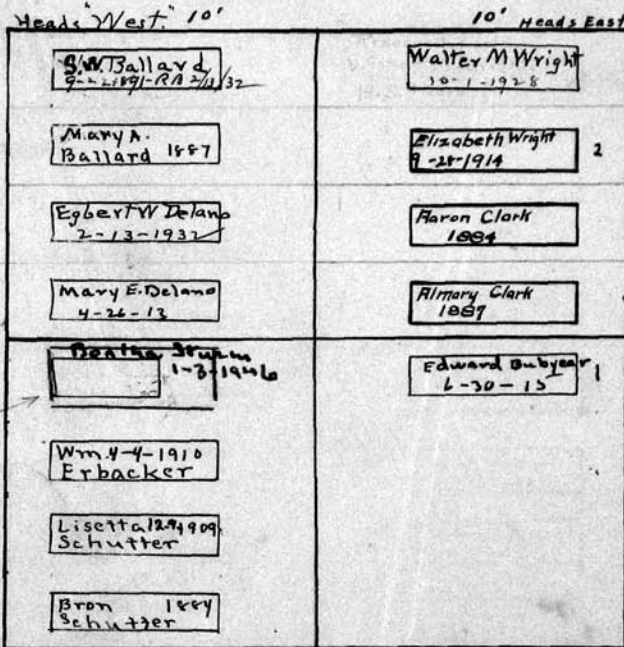 Heads "West." 10'
10' Heads East
S.W. Ballard
9-22-1891-RB 2/13/32
Mary A.
Ballard 1887
Egbert W Delano
2-13-1932
Mary E. Delano
4-26-13
Bertha Sturm
1-3-1946
Wm. 4-4-1910
Erbacker
Lisetta 12-9-1909
Schutter
Bron 1884
Schutter
Walter M Wright
10-1-1928
Elizabeth Wright
9-28-1914
2
Aaron Clark
1884
Almary Clark
1887
Edward Bubyear
6-30-15
1